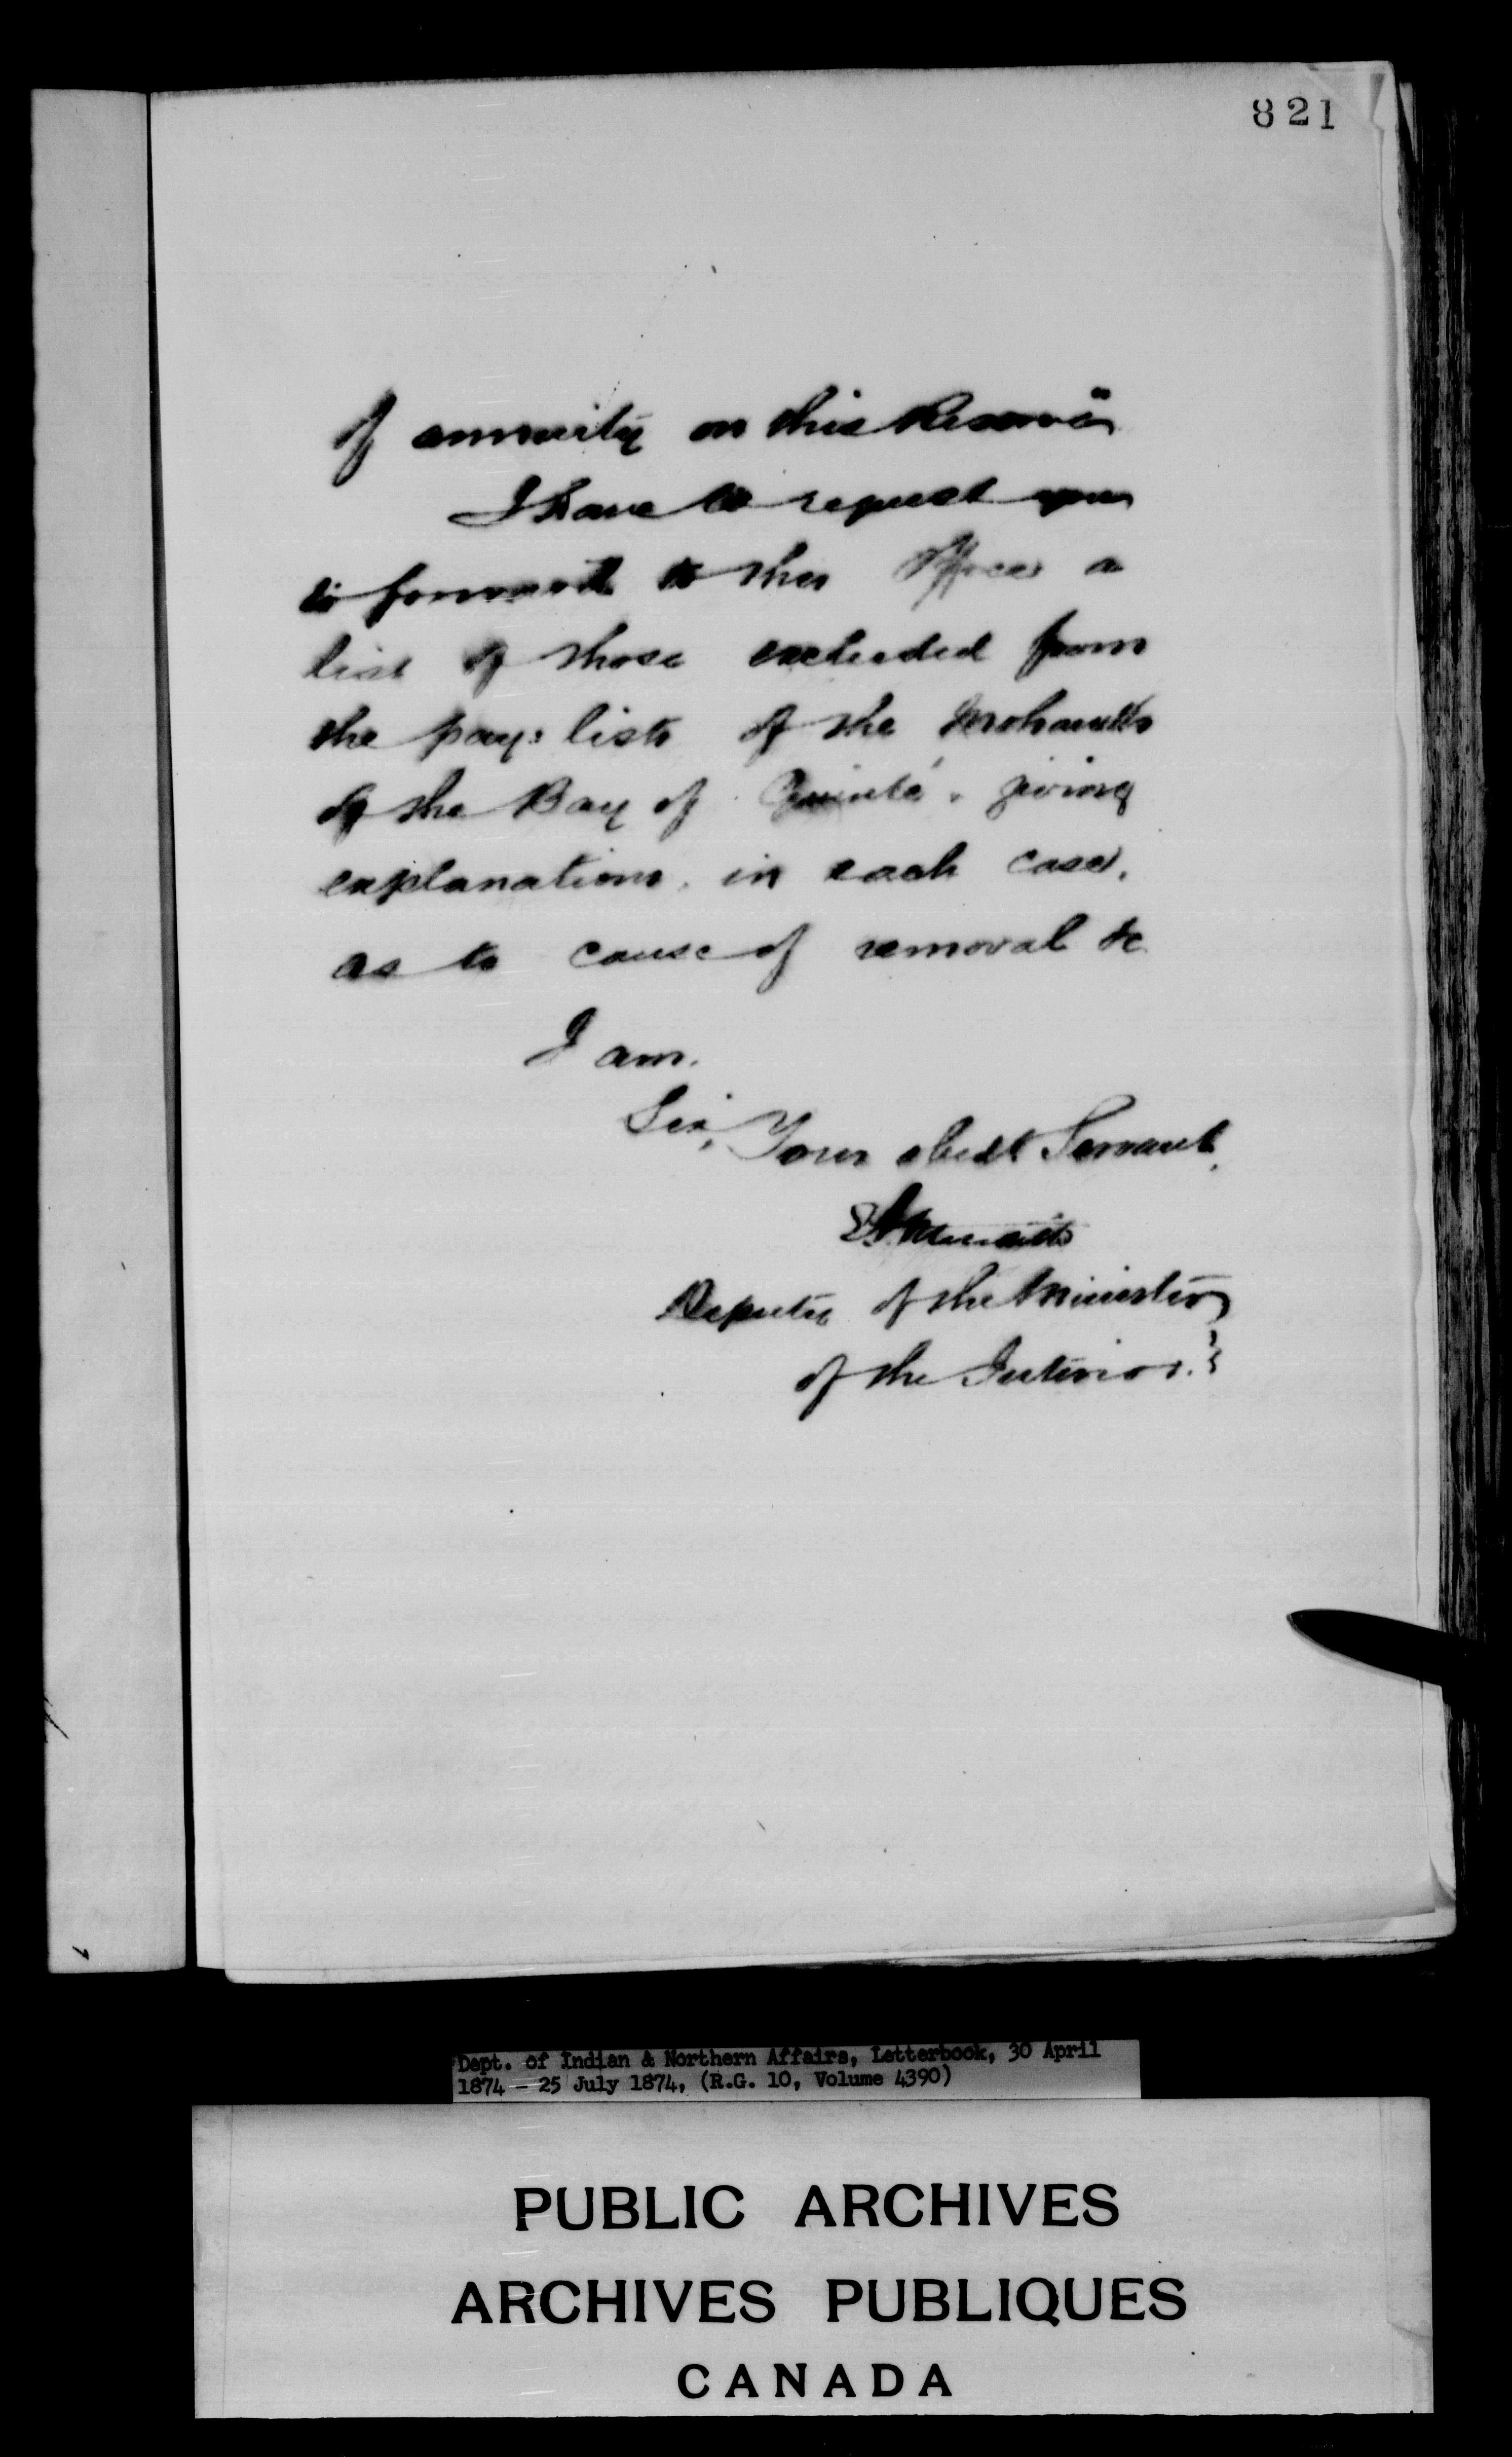 821
of annuity on this Reserve"
I have to request you
to forward to this Office a
list of those excluded from
the pay: lists of the Mohawks
of the Bay of Quinté, giving
explanations, in each case,
as to cause of removal &c
I am.
Sir,
Your obedt Servant,
Deputy of the Minister
of the Interior.
Dept. of Indian & Northern Affairs, Letterbook, 30 April
1874 - 25 July 1874, (R.G. 10, Volume 4390)
PUBLIC ARCHIVES
ARCHIVES PUBLIQUES
CANADA